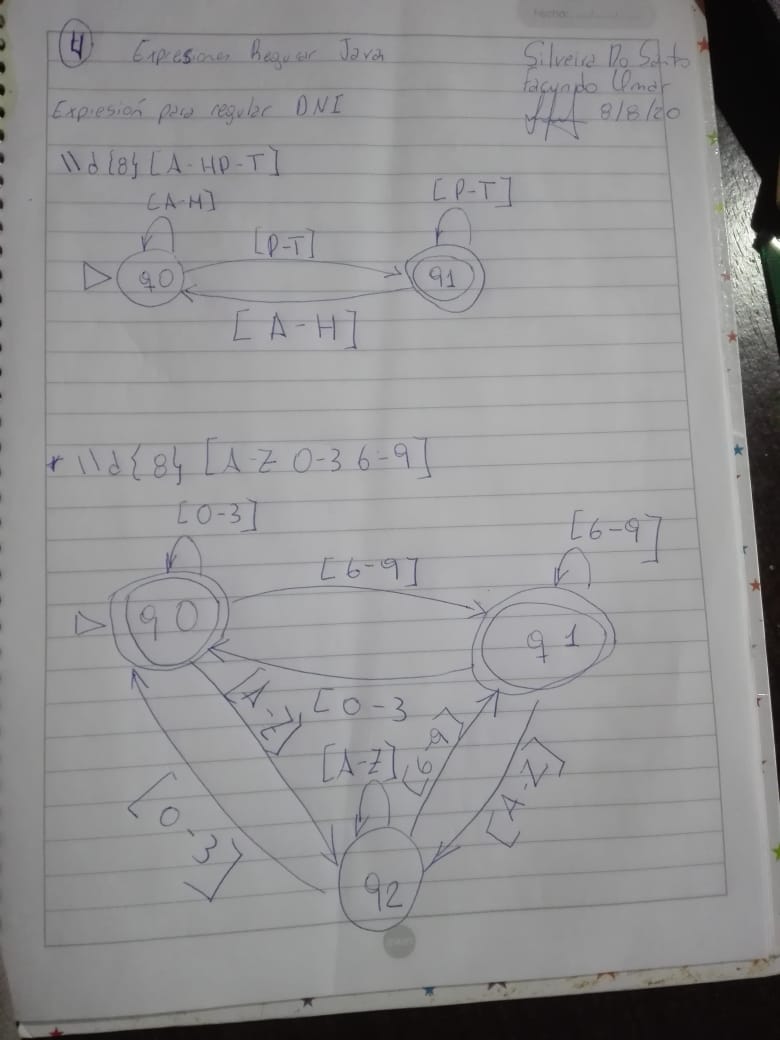 Fecha:
4 Expresiones Regular Java
Silveira Do Santo
Facundo Omar
8/8/20
Expresión para regular DNI
\\d{8}[A-HP-T]
[A-H]
[P-T]
[P-T]
q0
q1
[A-H]
* \\d{8} [A-Z 0-3 6-9]
[0-3]
[6-9]
[6-9]
q0
q1
[0-3
[A-Z]
[A-Z]
[6-9]
[A-Z]
[0-3]
q2